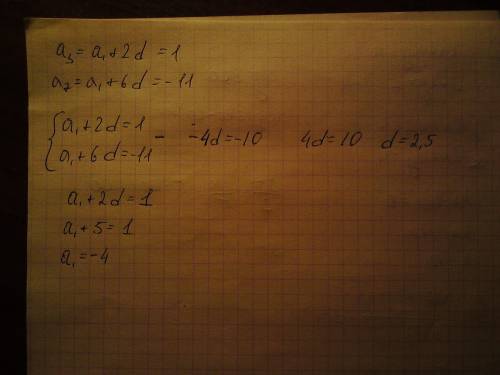 a₃ = a₁ + 2d = 1
a₇ = a₁ + 6d = -11
{ a₁ + 2d = 1
a₁ + 6d = -11 - -4d = -10 4d = 10 d = 2,5
a₁ + 2d = 1
a₁ + 5 = 1
a₁ = -4